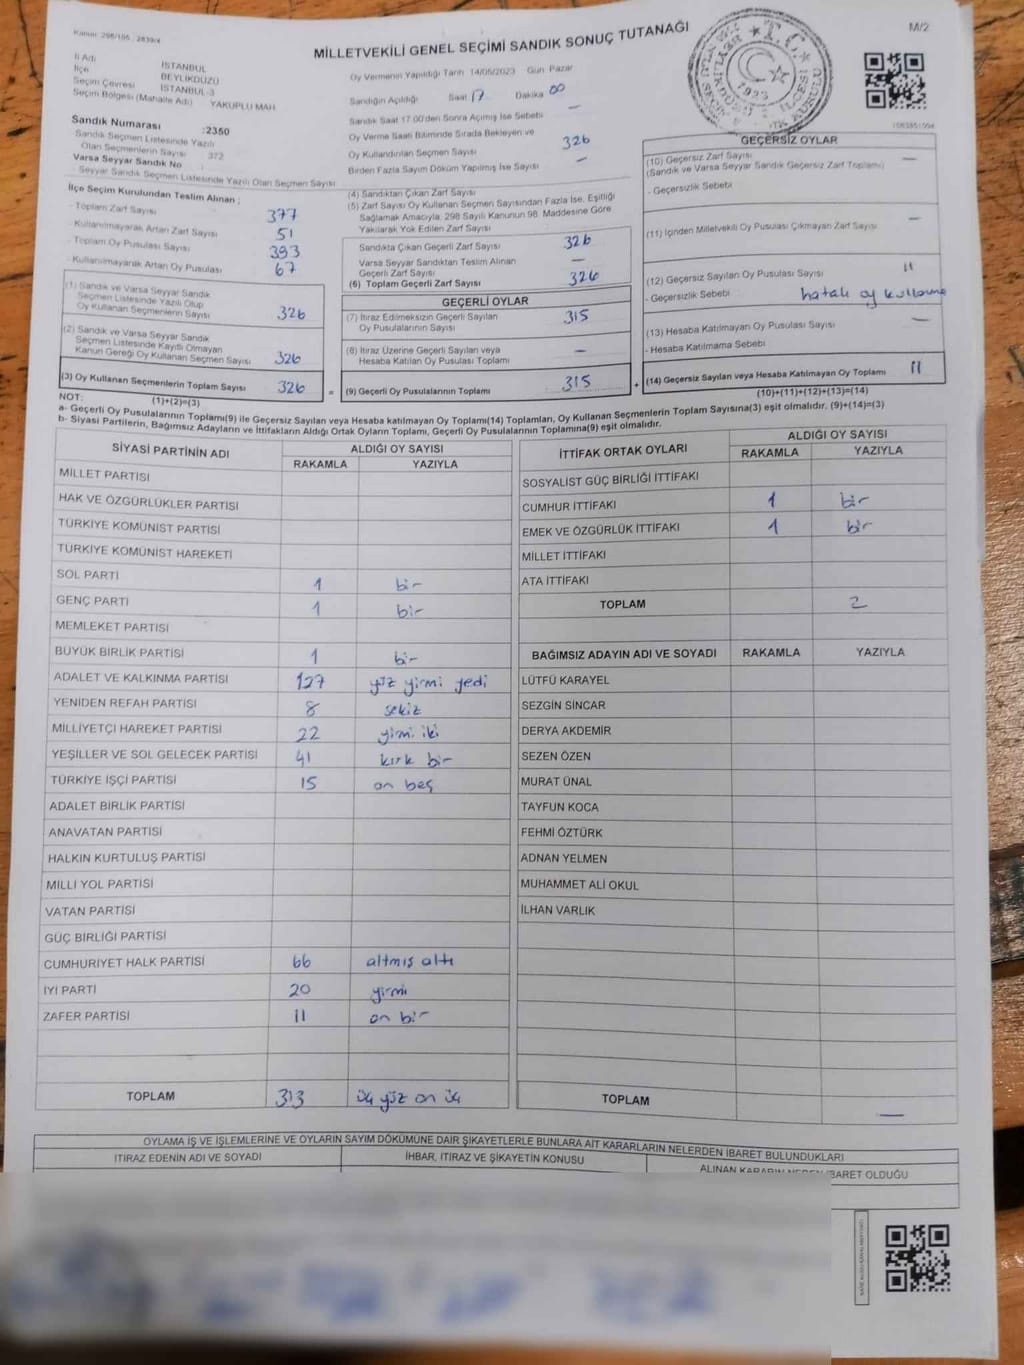 Kanun: 298/105, 2839/4
MİLLETVEKİLİ GENEL SEÇİMİ SANDIK SONUÇ TUTANAĞI
M/2
İl Adı İSTANBUL
İlçe BEYLİKDÜZÜ
Seçim Çevresi İSTANBUL-3
Seçim Bölgesi (Mahalle Adı) YAKUPLU MAH.
Sandık Numarası :2350
Sandık Seçmen Listesinde Yazılı
Olan Seçmenlerin Sayısı 372
Varsa Seyyar Sandık No
Seyyar Sandık Seçmen Listesinde Yazılı Olan Seçmen Sayısı
Oy Vermenin Yapıldığı Tarih 14/05/2023 Gün Pazar
Sandığın Açıldığı Saat 17 Dakika 00
Sandık Saat 17.00'den Sonra Açılmış İse Sebebi —
Oy Verme Saati Bitiminde Sırada Bekleyen ve
Oy Kullandırılan Seçmen Sayısı 326
Birden Fazla Sayım Döküm Yapılmış İse Sayısı —
T.C.
1923
İlçe Seçim Kurulundan Teslim Alınan ;
- Toplam Zarf Sayısı 377
- Kullanılmayarak Artan Zarf Sayısı 51
- Toplam Oy Pusulası Sayısı 393
- Kullanılmayarak Artan Oy Pusulası 67
(1) Sandık ve Varsa Seyyar Sandık
Seçmen Listesinde Yazılı Olup
Oy Kullanan Seçmenlerin Sayısı 326
(2) Sandık ve Varsa Seyyar Sandık
Seçmen Listesinde Kayıtlı Olmayan
Kanun Gereği Oy Kullanan Seçmen Sayısı 326
(3) Oy Kullanan Seçmenlerin Toplam Sayısı 326
(1)+(2)=(3)
(4) Sandıktan Çıkan Zarf Sayısı
(5) Zarf Sayısı Oy Kullanan Seçmen Sayısından Fazla İse, Eşitliği
Sağlamak Amacıyla, 298 Sayılı Kanunun 98. Maddesine Göre
Yakılarak Yok Edilen Zarf Sayısı
Sandıkta Çıkan Geçerli Zarf Sayısı 326
Varsa Seyyar Sandıktan Teslim Alınan
Geçerli Zarf Sayısı —
(6) Toplam Geçerli Zarf Sayısı 326
GEÇERLİ OYLAR
(7) İtiraz Edilmeksizin Geçerli Sayılan
Oy Pusulalarının Sayısı 315
(8) İtiraz Üzerine Geçerli Sayılan veya
Hesaba Katılan Oy Pusulası Toplamı —
= (9) Geçerli Oy Pusulalarının Toplamı 315 +
GEÇERSİZ OYLAR
(10) Geçersiz Zarf Sayısı —
(Sandık ve Varsa Seyyar Sandık Geçersiz Zarf Toplamı)
- Geçersizlik Sebebi
(11) İçinden Milletvekili Oy Pusulası Çıkmayan Zarf Sayısı —
(12) Geçersiz Sayılan Oy Pusulası Sayısı 11
- Geçersizlik Sebebi hatalı oy kullanma
(13) Hesaba Katılmayan Oy Pusulası Sayısı —
- Hesaba Katılmama Sebebi
(14) Geçersiz Sayılan veya Hesaba Katılmayan Oy Toplamı 11
(10)+(11)+(12)+(13)=(14)
NOT:
a- Geçerli Oy Pusulalarının Toplamı(9) ile Geçersiz Sayılan veya Hesaba katılmayan Oy Toplamı(14) Toplamları, Oy Kullanan Seçmenlerin Toplam Sayısına(3) eşit olmalıdır. (9)+(14)=(3)
b- Siyasi Partilerin, Bağımsız Adayların ve İttifakların Aldığı Ortak Oyların Toplamı, Geçerli Oy Pusulalarının Toplamına(9) eşit olmalıdır.
SİYASİ PARTİNİN ADI ALDIĞI OY SAYISI
RAKAMLA YAZIYLA
MİLLET PARTİSİ
HAK VE ÖZGÜRLÜKLER PARTİSİ
TÜRKİYE KOMÜNİST PARTİSİ
TÜRKİYE KOMÜNİST HAREKETİ
SOL PARTİ 1 bir
GENÇ PARTİ 1 bir
MEMLEKET PARTİSİ
BÜYÜK BİRLİK PARTİSİ 1 bir
ADALET VE KALKINMA PARTİSİ 127 yüz yirmi yedi
YENİDEN REFAH PARTİSİ 8 sekiz
MİLLİYETÇİ HAREKET PARTİSİ 22 yirmi iki
YEŞİLLER VE SOL GELECEK PARTİSİ 41 kırk bir
TÜRKİYE İŞÇİ PARTİSİ 15 on beş
ADALET BİRLİK PARTİSİ
ANAVATAN PARTİSİ
HALKIN KURTULUŞ PARTİSİ
MİLLİ YOL PARTİSİ
VATAN PARTİSİ
GÜÇ BİRLİĞİ PARTİSİ
CUMHURİYET HALK PARTİSİ 66 altmış altı
İYİ PARTİ 20 yirmi
ZAFER PARTİSİ 11 on bir
TOPLAM 313 üç yüz on üç
İTTİFAK ORTAK OYLARI ALDIĞI OY SAYISI
RAKAMLA YAZIYLA
SOSYALİST GÜÇ BİRLİĞİ İTTİFAKI
CUMHUR İTTİFAKI 1 bir
EMEK VE ÖZGÜRLÜK İTTİFAKI 1 bir
MİLLET İTTİFAKI
ATA İTTİFAKI
TOPLAM 2
BAĞIMSIZ ADAYIN ADI VE SOYADI RAKAMLA YAZIYLA
LÜTFÜ KARAYEL
SEZGİN SİNCAR
DERYA AKDEMİR
SEZEN ÖZEN
MURAT ÜNAL
TAYFUN KOCA
FEHMİ ÖZTÜRK
ADNAN YELMEN
MUHAMMET ALİ OKUL
İLHAN VARLIK
TOPLAM —
OYLAMA İŞ VE İŞLEMLERİNE VE OYLARIN SAYIM DÖKÜMÜNE DAİR ŞİKAYETLERLE BUNLARA AİT KARARLARIN NELERDEN İBARET BULUNDUKLARI
İTİRAZ EDENİN ADI VE SOYADI İHBAR, İTİRAZ VE ŞİKAYETİN KONUSU ALINAN KARARIN NEDEN İBARET OLDUĞU